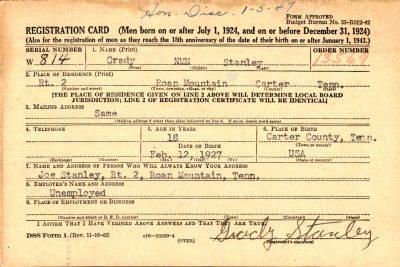 Hon. Disc. 1-5-47
FORM APPROVED
Budget Bureau No. 33-R012-42
REGISTRATION CARD (Men born on or after July 1, 1924, and on or before December 31, 1924)
(Also for the registration of men as they reach the 18th anniversary of the date of their birth on or after January 1, 1943.)
SERIAL NUMBER 1. NAME (Print) ORDER NUMBER
W. 814 Grady NMN Stanley 13561
(First) (Middle) (Last)
2. PLACE OF RESIDENCE (Print)
Rt. 2 Roan Mountain Carter Tenn.
(Number and street) (Town, township, village, or city) (County) (State)
[THE PLACE OF RESIDENCE GIVEN ON LINE 2 ABOVE WILL DETERMINE LOCAL BOARD
JURISDICTION; LINE 2 OF REGISTRATION CERTIFICATE WILL BE IDENTICAL]
3. MAILING ADDRESS
Same
[Mailing address if other than place indicated on line 2. If same, insert word same]
4. TELEPHONE 5. AGE IN YEARS 6. PLACE OF BIRTH
18 Carter County, Tenn.
DATE OF BIRTH (Town or county)
Feb. 12, 1927 USA
(Exchange) (Number) (Mo.) (Day) (Yr.) (State or country)
7. NAME AND ADDRESS OF PERSON WHO WILL ALWAYS KNOW YOUR ADDRESS
Joe Stanley, Rt. 2, Roan Mountain, Tenn.
8. EMPLOYER'S NAME AND ADDRESS
Unemployed
9. PLACE OF EMPLOYMENT OR BUSINESS
(Number and street or R. F. D. number) (Town) (County) (State)
I AFFIRM THAT I HAVE VERIFIED ABOVE ANSWERS AND THAT THEY ARE TRUE.
DSS Form 1 (Rev. 11-16-42) (OVER) Grady Stanley
(Registrant's signature)